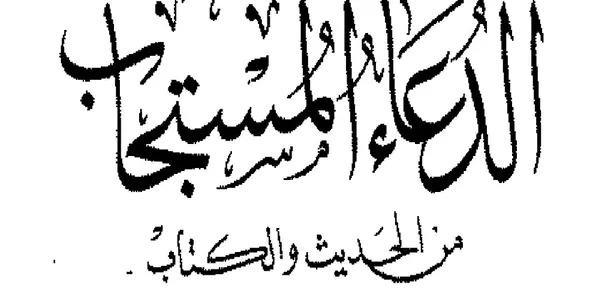 الدُعَاءُ المُسْتَجَابُ
من الحَديث والكتابْ